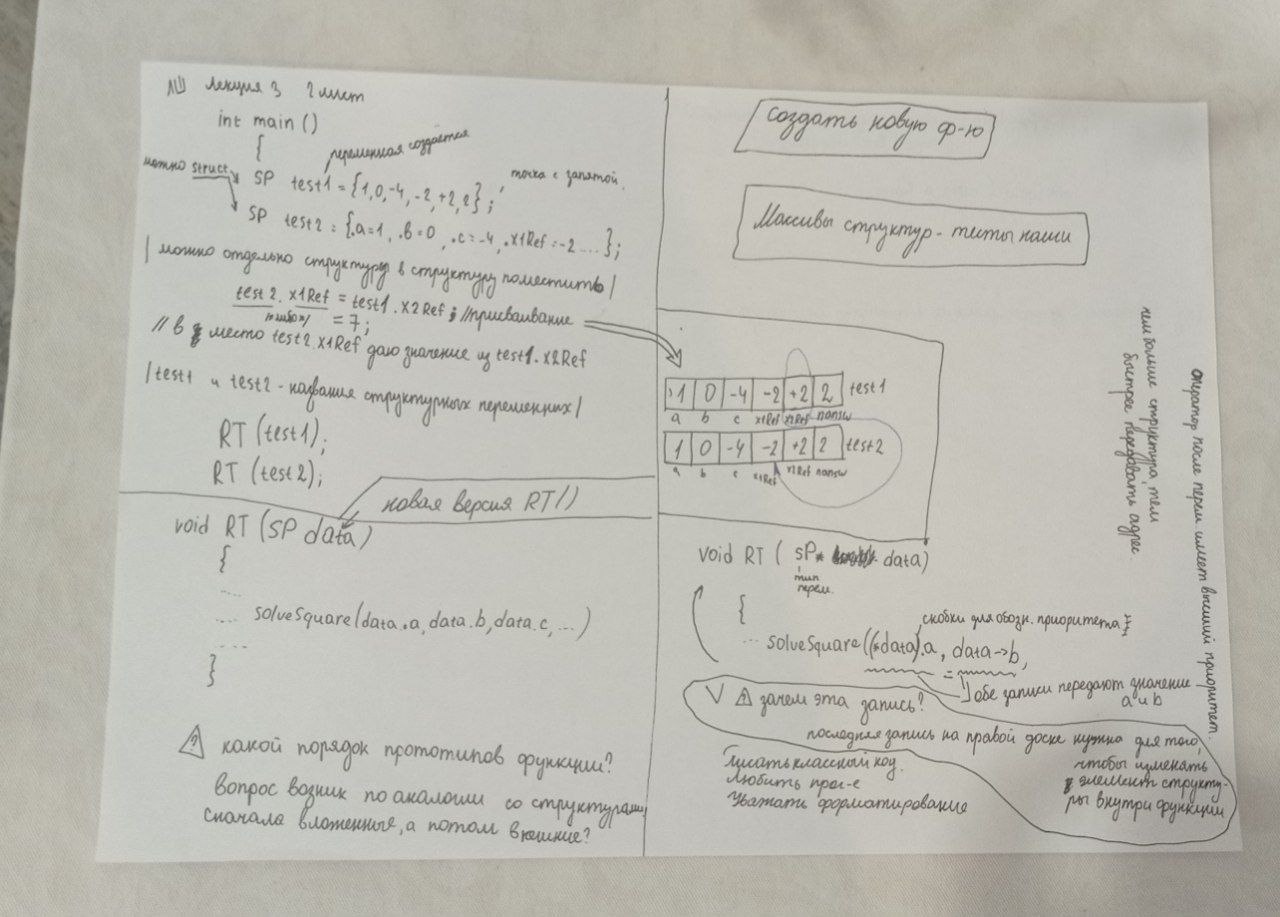 ЛШ лекция 3 2 лист
int main ()
{
переменная создаётся
можно struct
SP test1 = {1, 0, -4, -2, +2, 2};
точка с запятой.
SP test2 = {.a=1, .b=0, .c=-4, .x1Ref=-2 ... };
| можно отдельно структуру в структуру поместить |
test2.x1Ref = test1.x2Ref; //присваивание
= 7;
// в место test2.x1Ref даю значение из test1.x2Ref
| test1 и test2 - названия структурных переменных |
RT (test1);
RT (test2);
новая версия RT()
void RT (SP data)
{
....
.... solveSquare(data.a, data.b, data.c, ...)
....
}
? какой порядок прототипов функции?
Вопрос возник по аналогии со структурами,
сначала вложенные, а потом внешние?
создать новую ф-ю
Массивы структур - тесты наши
1 0 -4 -2 +2 2 test1
a b c x1Ref x2Ref nansw
1 0 -4 -2 +2 2 test2
a b c x1Ref x2Ref nansw
чем больше структура, тем
быстрее передавать адрес.
оператор после перем. имеет высший приоритет.
void RT ( SP* data)
тип
перем.
{
скобки для обозн. приоритета
... solveSquare((*data).a, data->b,
=
обе записи передают значение
a и b
V ? зачем эта запись?
последняя запись на правой доске нужна для того,
чтобы изменять
элемент структу-
ры внутри функции
Писать классный код.
Любить прог-е
Уважать форматирование